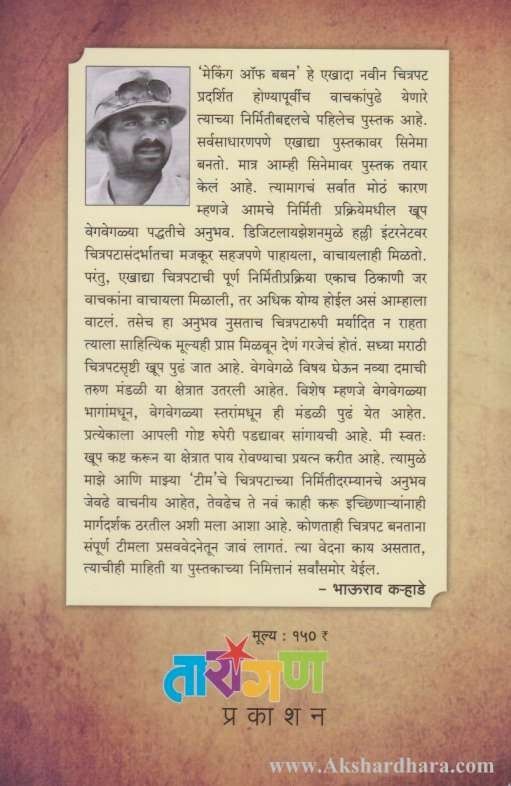 ‘मेकिंग ऑफ बबन’ हे एखादा नवीन चित्रपट
प्रदर्शित होण्यापूर्वीच वाचकांपुढे येणारे
त्याच्या निर्मितीबद्दलचे पहिलेच पुस्तक आहे.
सर्वसाधारणपणे एखाद्या पुस्तकावर सिनेमा
बनतो. मात्र आम्ही सिनेमावर पुस्तक तयार
केलं आहे. त्यामागचं सर्वात मोठं कारण
म्हणजे आमचे निर्मिती प्रक्रियेमधील खूप
वेगवेगळ्या पद्धतीचे अनुभव. डिजिटलायझेशनमुळे हल्ली इंटरनेटवर
चित्रपटासंदर्भातचा मजकूर सहजपणे पाहायला, वाचायलाही मिळतो.
परंतु, एखाद्या चित्रपटाची पूर्ण निर्मितीप्रक्रिया एकाच ठिकाणी जर
वाचकांना वाचायला मिळाली, तर अधिक योग्य होईल असं आम्हाला
वाटलं. तसेच हा अनुभव नुसताच चित्रपटारुपी मर्यादित न राहता
त्याला साहित्यिक मूल्यही प्राप्त मिळवून देणं गरजेचं होतं. सध्या मराठी
चित्रपटसृष्टी खूप पुढं जात आहे. वेगवेगळे विषय घेऊन नव्या दमाची
तरुण मंडळी या क्षेत्रात उतरली आहेत. विशेष म्हणजे वेगवेगळ्या
भागांमधून, वेगवेगळ्या स्तरांमधून ही मंडळी पुढं येत आहेत.
प्रत्येकाला आपली गोष्ट रुपेरी पडद्यावर सांगायची आहे. मी स्वतः
खूप कष्ट करून या क्षेत्रात पाय रोवण्याचा प्रयत्न करीत आहे. त्यामुळे
माझे आणि माझ्या ‘टीम’चे चित्रपटाच्या निर्मितीदरम्यानचे अनुभव
जेवढे वाचनीय आहेत, तेवढेच ते नवं काही करू इच्छिणाऱ्यांनाही
मार्गदर्शक ठरतील अशी मला आशा आहे. कोणताही चित्रपट बनताना
संपूर्ण टीमला प्रसववेदनेतून जावं लागतं. त्या वेदना काय असतात,
त्याचीही माहिती या पुस्तकाच्या निमित्तानं सर्वांसमोर येईल.
– भाऊराव कऱ्हाडे
मूल्य : १५० ₹
तारांगण
प्रकाशन
www.Akshardhara.com